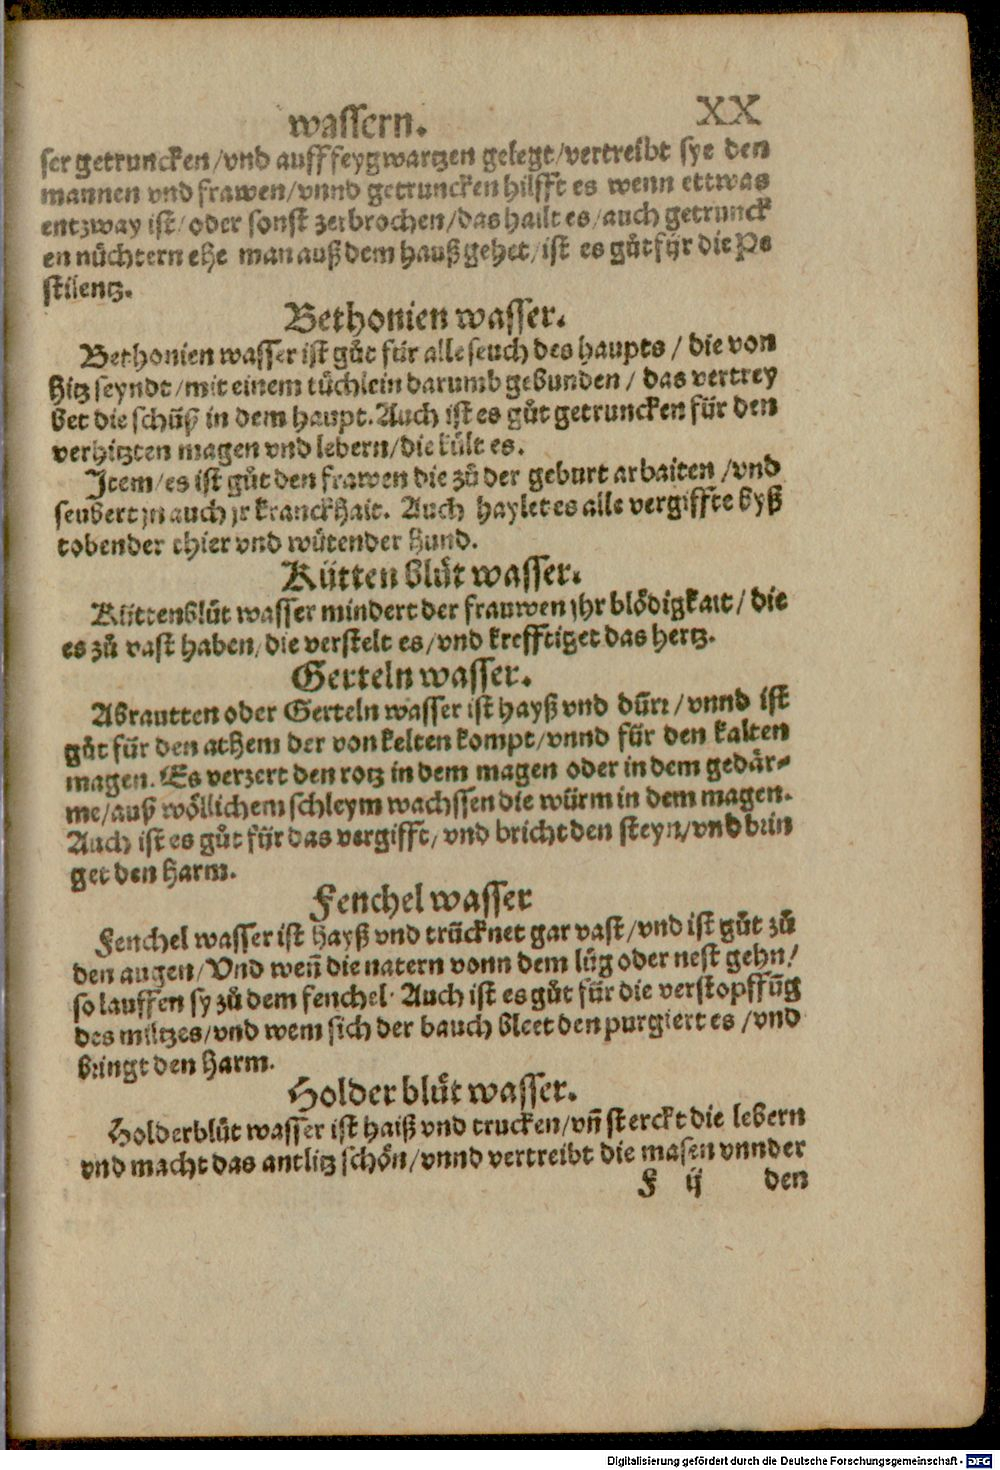 wassern. XX
ser getruncken/vnd aufffeygwartzen gelegt/vertreibt sye den
mannen vnd frawen/vnnd getruncken hilfft es wenn ettwas
entzway ist/oder sonst zerbrochen/das hailt es/auch getrunck
en nüchtern ehe man auß dem hauß gehet/ist es gůt für die Pe
stilentz.
Bethonien wasser.
Bethonien wasser ist gůt für alle seuch des haupts/die von
hitz seyndt/mit einem tüchlein darumb gebunden/das vertrey
bet die schüß in dem haupt. Auch ist es gůt getruncken für den
verhitzten magen vnd lebern/die kült es.
Item/es ist gůt den frawen die zů der geburt arbaiten/vnd
seubert jn auch jr kranckhait. Auch haylet es alle vergiffte byß
tobender thier vnd wütender hund.
Kütten blůt wasser.
Küttenblůt wasser mindert der frauwen jhr blödigkait/die
es zů vast haben/die verstelt es/vnd krefftiget das hertz.
Gerteln wasser.
Abrautten oder Gerteln wasser ist hayß vnd dürr/vnnd ist
gůt für den athem der von kelten kompt/vnnd für den kalten
magen. Es verzert den rotz in dem magen oder in dem gedär-
me/auß wöllichem schleym wachssen die würm in dem magen.
Auch ist es gůt für das vergifft/vnd bricht den steyn/vnd brin
get den harm.
Fenchel wasser
Fenchel wasser ist hayß vnd trücknet gar vast/vnd ist gůt zů
den augen/Vnd weñ die natern vonn dem lůg oder nest gehn/
so lauffen sy zů dem fenchel. Auch ist es gůt für die verstopffũg
des miltzes/vnd wem sich der bauch bleet den purgiert es/vnd
bringt den harm.
Holder blůt wasser.
Holderblůt wasser ist haiß vnd trucken/vñ sterckt die lebern
vnd macht das antlitz schön/vnnd vertreibt die masen vnnder
F ij den
Digitalisierung gefördert durch die Deutsche Forschungsgemeinschaft - DFG